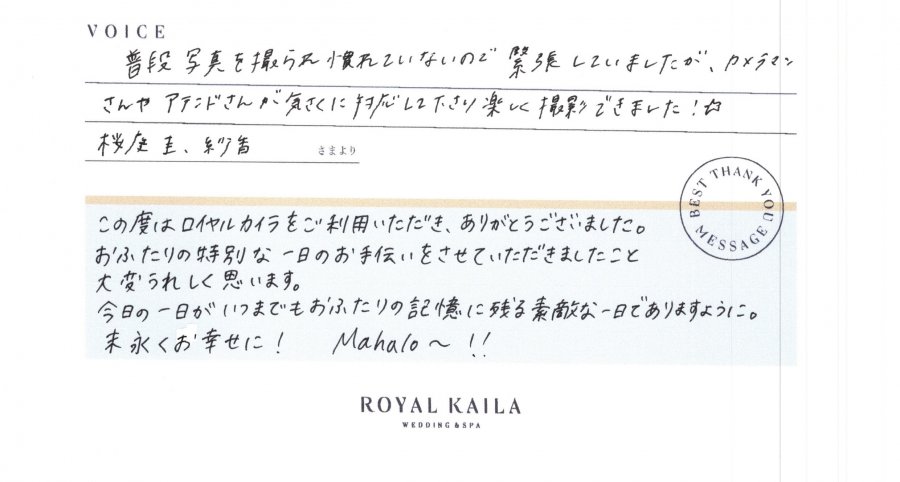 VOICE
普段 写真を撮られ慣れていないので 緊張していましたが、カメラマン
さんや アテンドさんが気さくに対応して下さり楽しく撮影できました！☆
桜庭 圭、紗香 さまより
BEST THANK YOU MESSAGE
この度はロイヤルカイラをご利用いただき、ありがとうございました。
おふたりの特別な一日のお手伝いをさせていただきましたこと
大変うれしく思います。
今日の一日がいつまでもおふたりの記憶に残る素敵な一日でありますように。
末永くお幸せに！ Mahalo〜!!
ROYAL KAILA
WEDDING & SPA